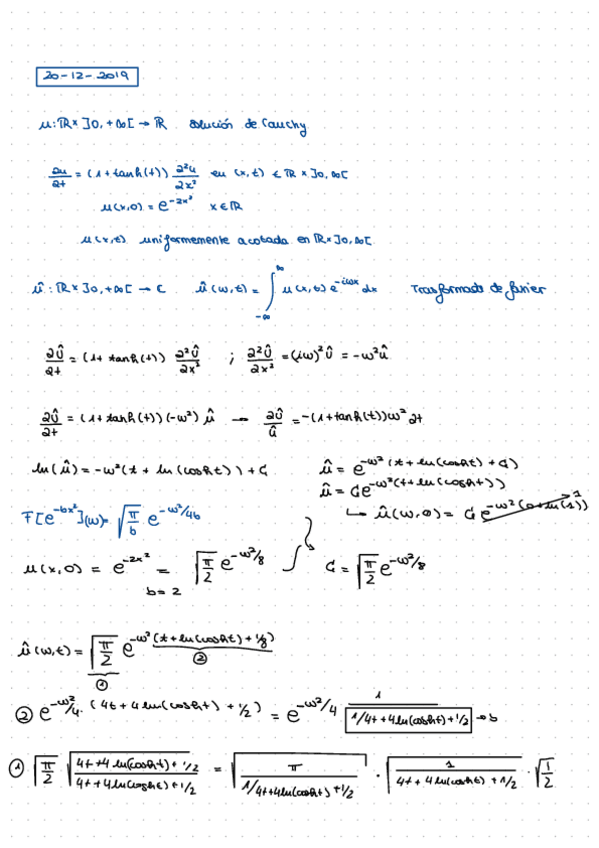 20-12-2019
u: ℝ×]0,+∞[ → ℝ solución de Cauchy
∂u/∂t = (1+tanh(t)) ∂²u/∂x² en (x,t) ∈ ℝ×]0,∞[
u(x,0) = e^{-2x²} x∈ℝ
u(x,t) uniformemente acotada en ℝ×]0,∞[
û: ℝ×]0,+∞[ → ℂ û(ω,t) = ∫_{-∞}^{∞} u(x,t) e^{-iωx} dx Trasformada de fourier
∂Û/∂t = (1+tanh(t)) ∂²Û/∂x² ; ∂²Û/∂x² = (iω)² Û = -ω² û
∂Û/∂t = (1+tanh(t))(-ω²) û → ∂Û/û = -(1+tanh(t))ω² ∂t
ln(û) = -ω²(t + ln(cosh t)) + C û = e^{-ω²(t + ln(cosh t) + C)}
û = C e^{-ω²(t + ln(cosh t))}
↳ û(ω,0) = C e^{-ω²(0+ln(1))} 1
F[e^{-bx²}](ω) = √(π/b) e^{-ω²/4b}
u(x,0) = e^{-2x²} = √(π/2) e^{-ω²/8} C = √(π/2) e^{-ω²/8}
b=2
û(ω,t) = √(π/2) e^{-ω²(t + ln(cosh t) + 1/8)}
① ②
② e^{-ω²/4 · (4t + 4 ln(cosh t) + 1/2)} = e^{-ω²/4 · 1/(1/4t + 4 ln(cosh t) + 1/2)} → b
① √(π/2) √((4t + 4 ln(cosh t) + 1/2)/(4t + 4 ln(cosh t) + 1/2)) = √(π/(1/4t + 4 ln(cosh t) + 1/2)) · √(1/(4t + 4 ln(cosh t) + 1/2)) · √(1/2)